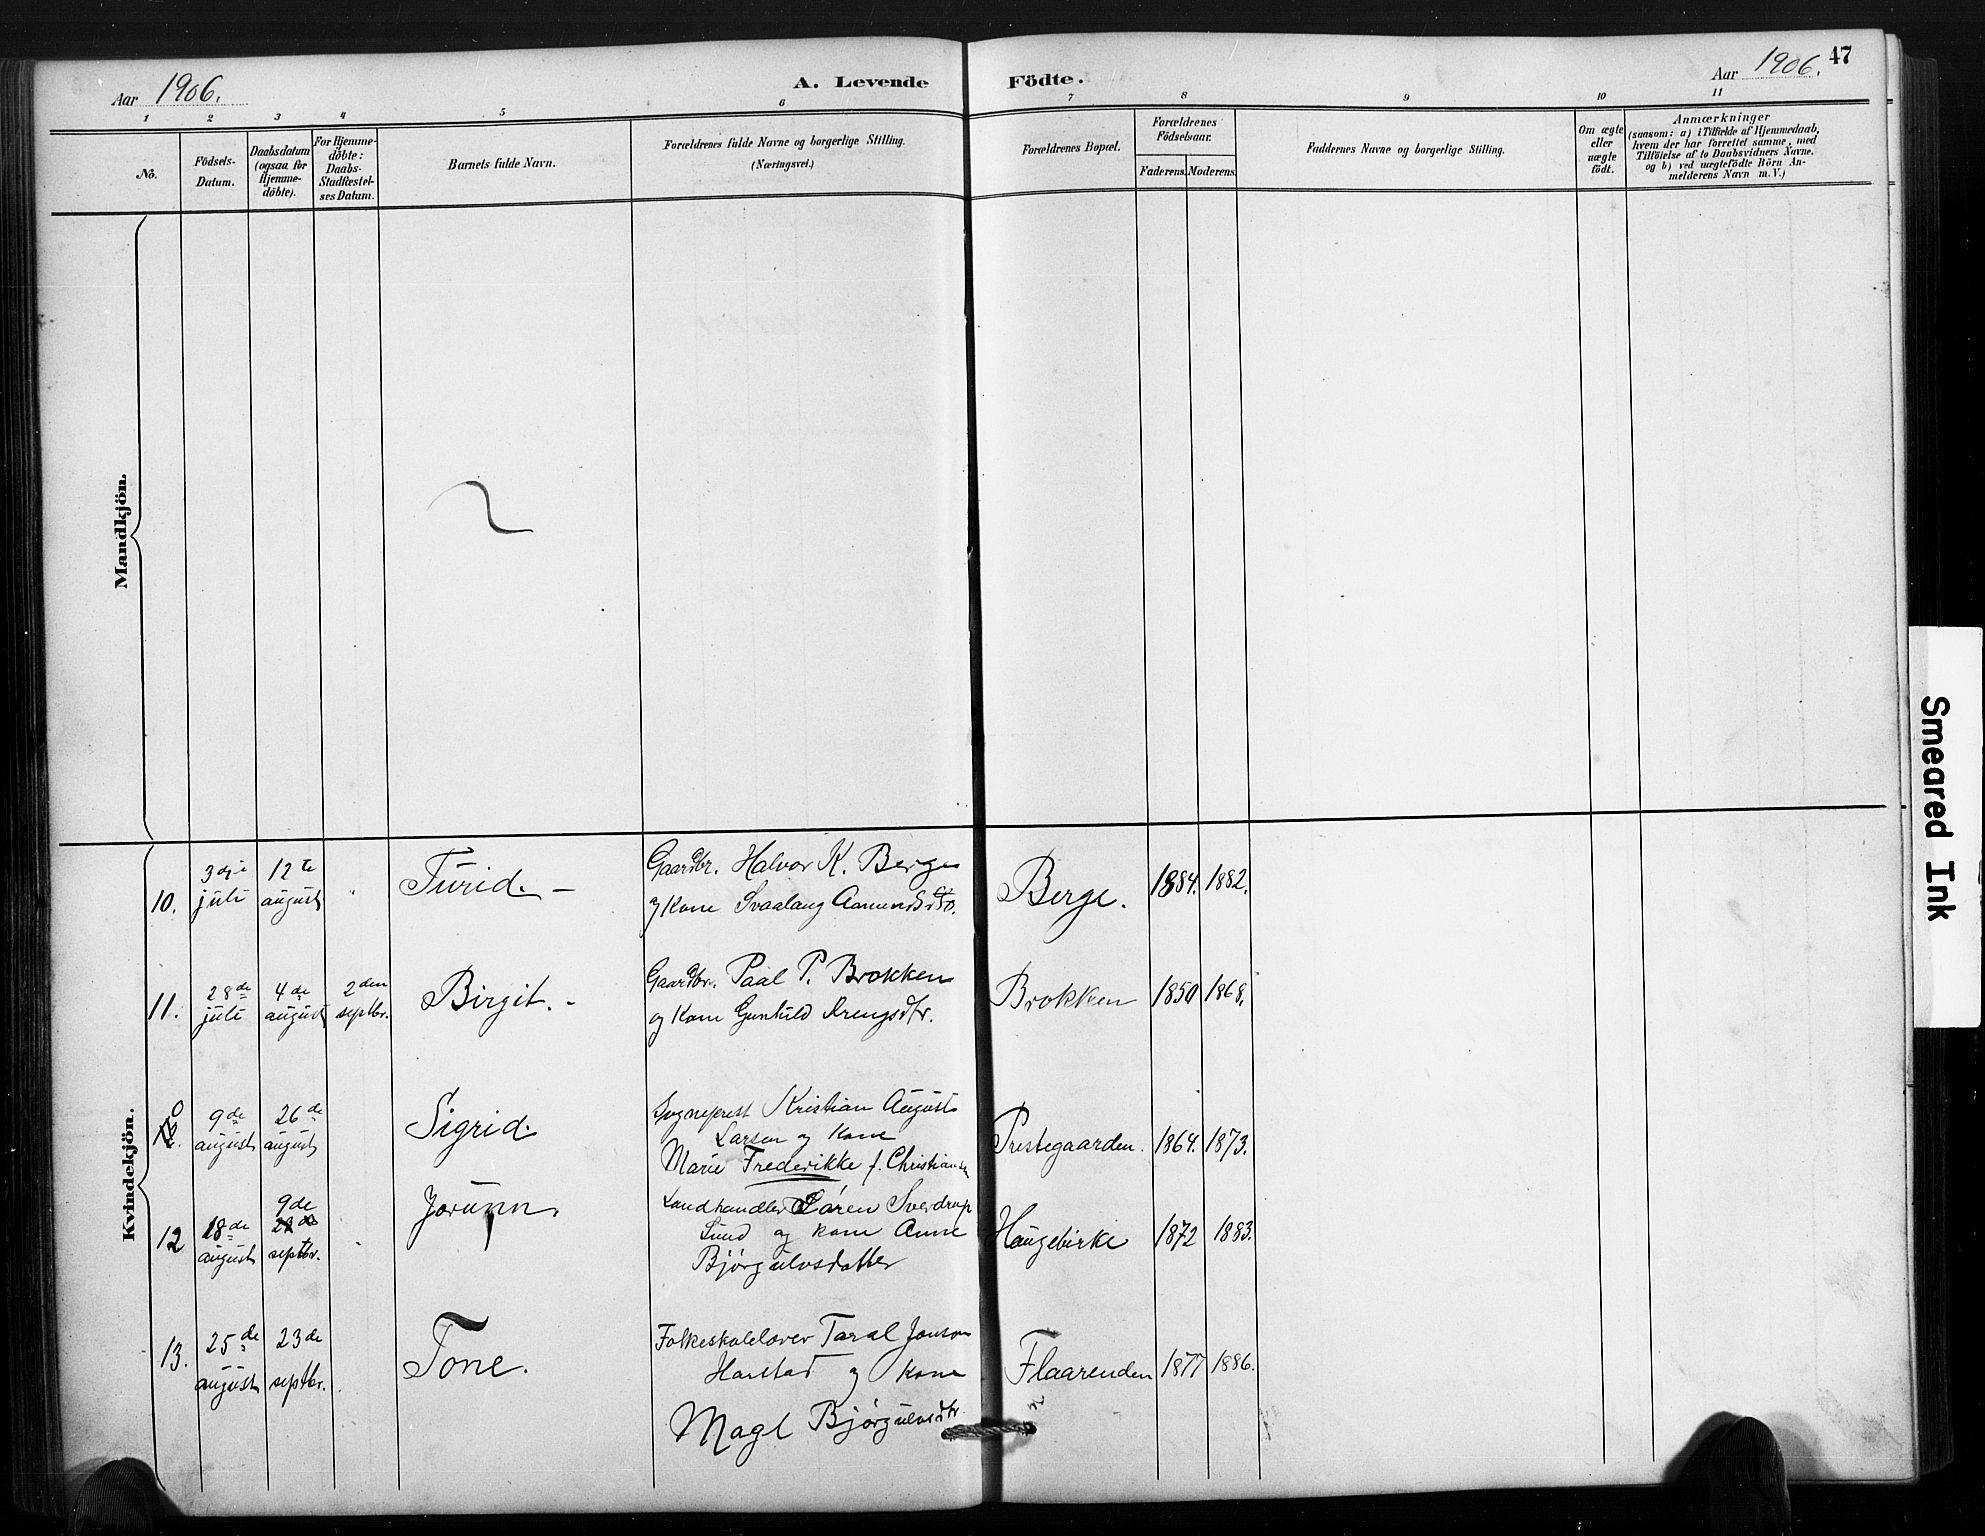 Aar 1906.
A. Levende Födte.
Aar 1906.
47
1 2 3 4 5 6 7 8 9 10 11
No.
Födsels-
Datum.
Daabsdatum
(ogsaa for
Hjemme-
döbte).
For Hjemme-
döbte:
Daabs-
Stadfæstel-
ses Datum.
Barnets fulde Navn.
Forældrenes fulde Navne og borgerlige Stilling.
(Næringsvei.)
Forældrenes Bopæl.
Forældrenes
Födselsaar.
Faderens. Moderens.
Faddernes Navne og borgerlige Stilling.
Om ægte
eller
uægte
födt.
Anmærkninger
(saasom: a) i Tilfælde af Hjemmedaab,
hvem der har forrettet samme, med
Tilföielse af to Daabsvidners Navne.
og b) ved uægtefödte Börn An-
melderens Navn m. V.)
Mandkjön.
Kvindekjön.
10.
3die
juli
12te
august
Turid. –
Gaardbr. Halvor K. Berge
og Kone Svaalaug Aamunds
Berge.
1884. 1882.
11.
28de
juli
4de
august
2den
septbr.
Birgit. –
Gaardbr. Paal P. Brokken
og Kone Gunhild
Brokken
1850 1868.
9de
august
26de
august
Sigrid.
Sogneprest Kristian August
Larsen og Kone
Marie Frederikke f. Christiansen
Prestegaarden.
1864. 1873.
12
18de
august
9de
septbr.
Jorunn.
Landhandler Søren Sverdrup
Lund og kone Anne
Bjørgulvsdatter
Haugebirke
1872 1883.
13.
25de
august
23de
septbr.
Tone.
Folkeskolelærer Taral Jonson
Harstad og kone
Magl Bjørgulvsdtr
Flaarenden
1877 1886.
Smeared Ink